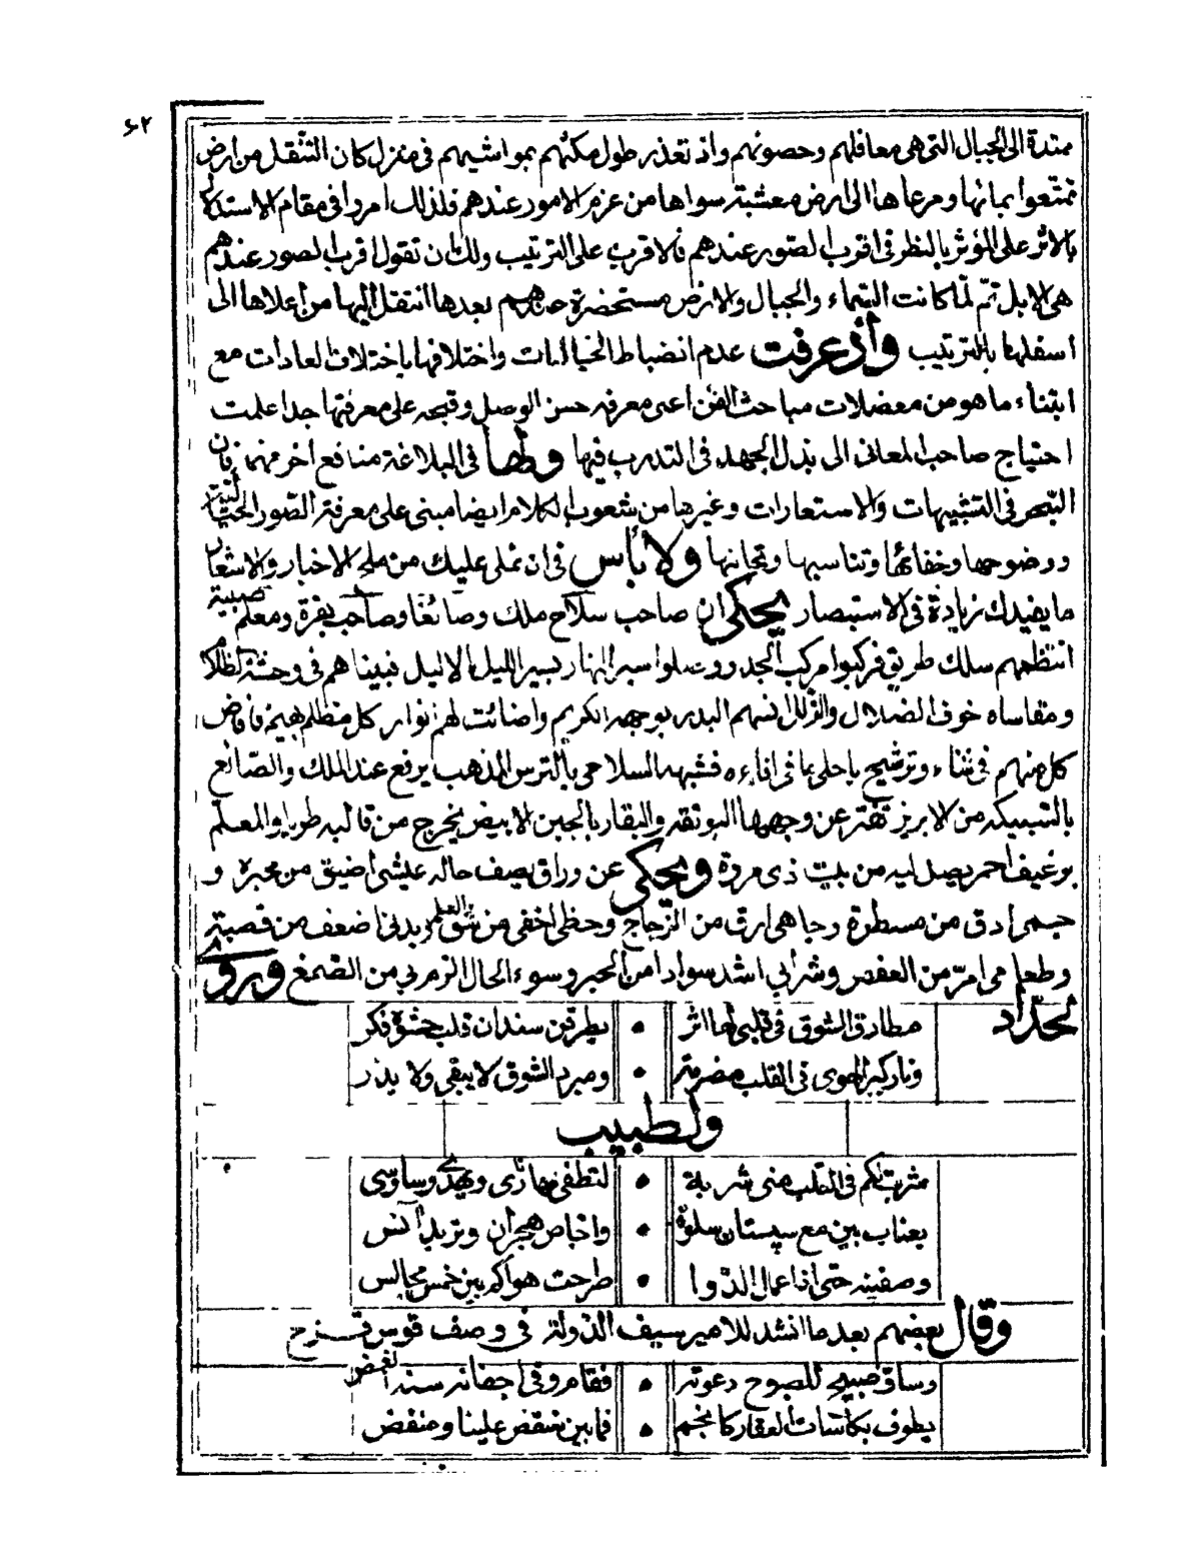 ٦٢
ممتدة الى الجبال التى هى معاقلهم وحصونهم واذ تعذر طول مكثهم بمواشيهم فى منزل كان التنقل من ارض
تمتعوا بمائها ومرعاها الى ارض معشبة سواها من عزم الامور عندهم فلذلك امروا فى مقام الاستدلال
بالاثر على المؤثر بالنظر فى اقرب الصور عندهم فالاقرب على الترتيب ولك ان تقول اقرب الصور عندهم
هى الابل ثم لما كانت السماء والجبال والارض مستحضرة بعدها انتقل اليها من اعلاها الى
اسفلها بالترتيب واذ عرفت عدم انضباط الخيالات واختلافها باختلاف العادات مع
ابتناء ما هو من معضلات مباحث الفن اعنى معرفة حسن الوصل وقبحه على معرفتها جدا علمت
احتياج صاحب المعانى الى بذل الجهد فى التدرب فيها ولها فى البلاغة منافع اخر مهمة فان
التبحر فى التشبيهات والاستعارات وغيرها من شعوب الكلام ايضا مبنى على معرفة الصور الخيالية
ووضوحها وخفائها وتناسبها وتجانبها ولا بأس فى ان نملى عليك من ملح الاخبار والاشعار
ما يفيدك زيادة فى الاستبصار يحكى ان صاحب سلاح ملك وصائغا وصاحب بقرة ومعلم صبية
انتظمهم سلك طريق فركبوا مركب الجد ووصلوا سير النهار بسير الليل الاليل فبينا هم فى وحشة الظلام
ومقاساة خوف الضلال والزلل انسهم البدر بوجهه الكريم واضائت لهم نوار كل مظلم بهيم فافاض
كل منهم فى ثناء وترشيح باحلى ما فى اناءه فشبهه السلاحى بالترس المذهب يرفع عند الملك والصائغ
بالسبيكة من الابريز تفتر عن وجهها البوتقة والبقار بالجبن الابيض يخرج من قالبه طريا والمعلم
برغيف احمر يصل اليه من بيت ذى مروة ويحكى عن وراق يصف حاله عيشى اضيق من محبرة و
جسمى ادق من مسطرة وجاهى ارق من الزجاج وحظى اخفى من شق القلم وبدنى اضعف من قصبة
وطعامى امر من العفص وشرابى اشد سوادا من الحبر وسوء الحال الزم بى من الصمغ وروى
لحداد
مطارق الشوق فى قلبى لها اثر • يطرقن سندان قلب حشوه فكر
ونار كير الهوى فى القلب مضرمة • ومبرد الشوق لا يبقى ولا يذر
ولطبيب
شربت لكم فى القلب منى شربة • لتطفى بها نارى ويهدى وساوسى
بعناب بين مع سپستان سلوة • واجاص هجران وتربد آنس
وصفيته حتى اذا عمل الدوا • طرحت هواكم بين خمس مجالس
وقال بعضهم بعد ما انشد للامير سيف الدولة فى وصف قوس قزح
وساق صبيح للصبوح دعوته • فقام وفى اجفانه سنة الغمض
يطوف بكاسات العقار كانجم • فما بين منقض علينا ومنفض